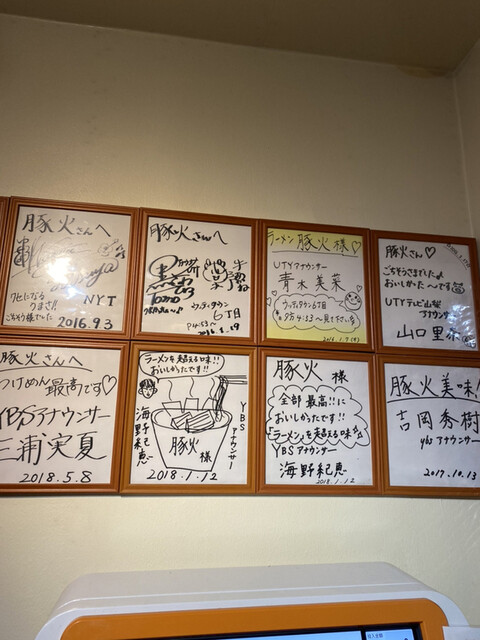 豚火さんへ
クセになる
うまさ!!
ごちそう様でした
NYT
2016.9.3
豚火さんへ
ウッティタウン
6丁目
ラーメン 豚火 様♡
UTYアナウンサー
青木美菜
ウッティタウン6丁目
夕方4:53~見て下さい
豚火さん♡
ごちそうさまでした
おいしかったで~です
UTYテレビ山梨
アナウンサー
山口里
豚火さんへ
つけめん最高です♡
YBSアナウンサー
三浦実夏
2018.5.8
ラーメンを超える味!!
おいしかったです!!
海野紀恵
YBS
アナウンサー
豚火
様
2018.1.12
豚火 様
全部最高!!に
おいしかったです!!
「ラーメン」を超える味
YBSアナウンサー
海野紀恵
2018.1.12
豚火美味!
吉岡秀樹
ybsアナウンサー
2017.10.13